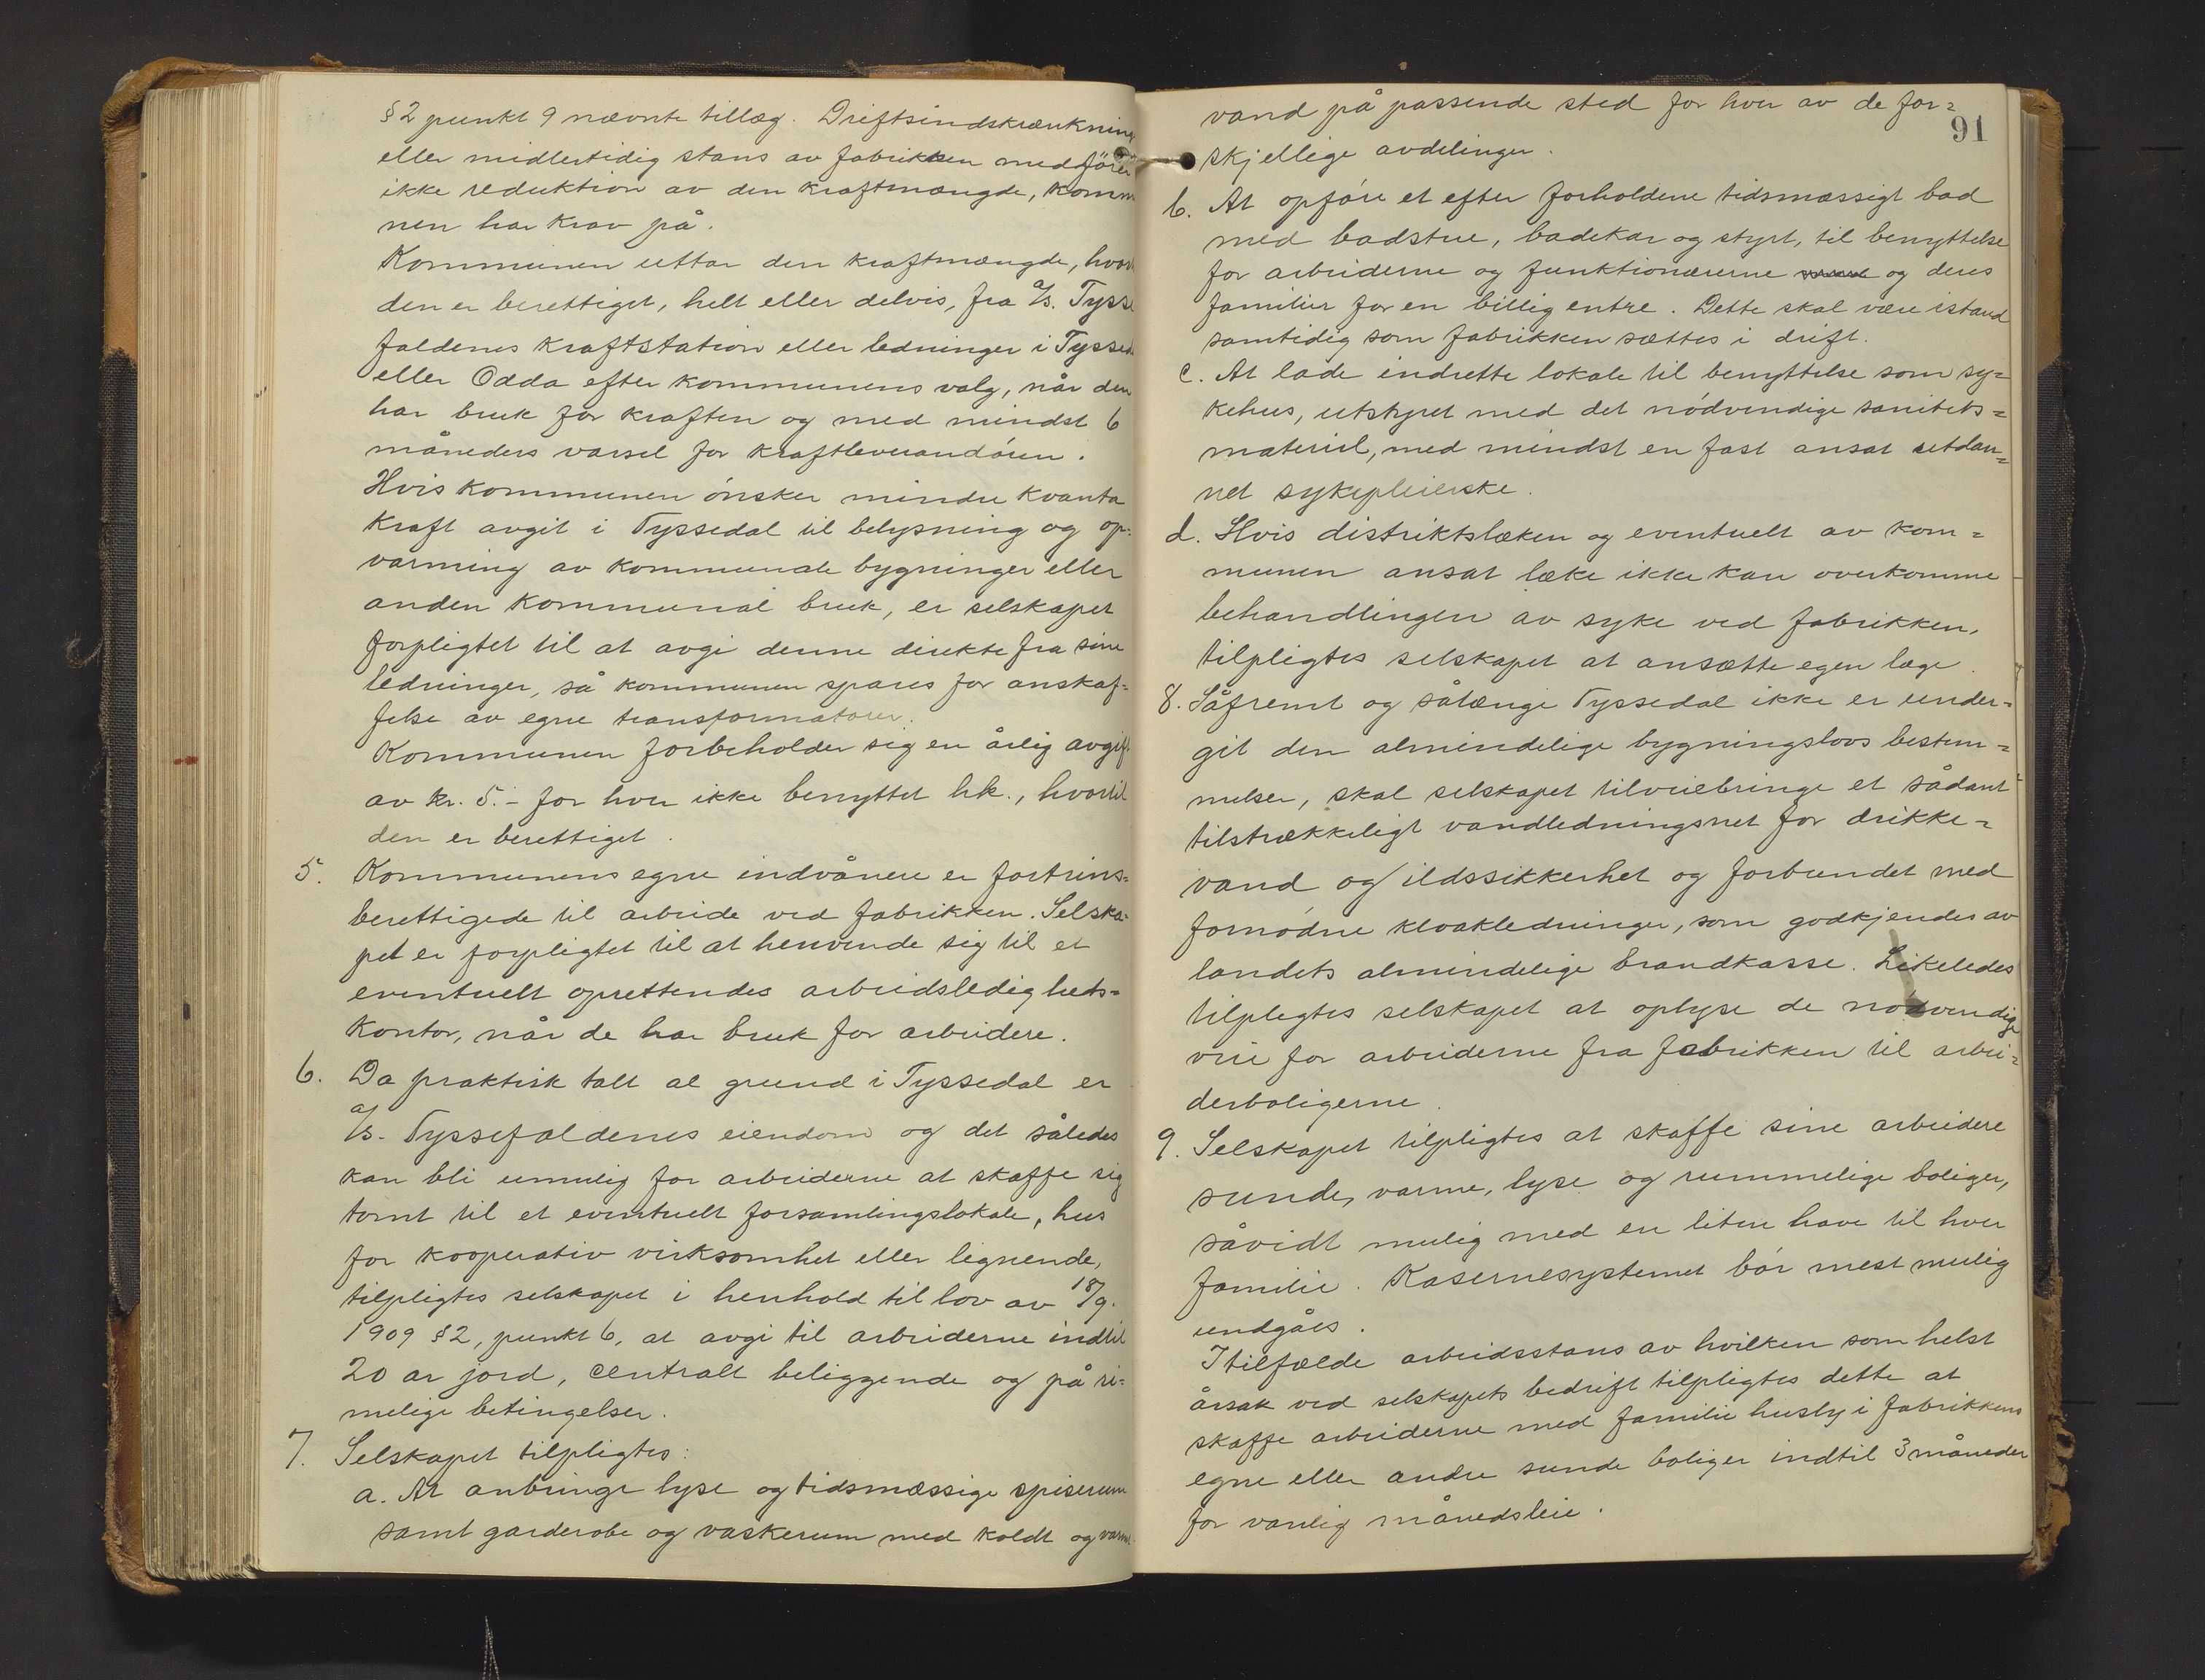 § 2 punkt 9 nævnte tillæg. Driftsindskrænkning
eller midlertidig stans av fabrikken medfører
ikke reduktion av den kraftmængde, komm
nen har krav på.
Kommunen uttar den kraftmængde, hvor
den er berettiget, helt eller delvis, fra A/S. Tysse
faldenes kraftstation eller ledninger i Tyssed
eller Odda efter kommunens valg, når den
har bruk for kraften og med mindst 6
måneders varsel for kraftleverandøren.
Hvis kommunen ønsker mindre kvanta
kraft avgit i Tyssedal til belysning og op-
varming av kommunale bygninger eller
anden kommunal bruk, er selskapet
forpligtet til at avgi denne direkte fra sine
ledninger, så kommunen spares for anskaf=
felse av egne transformatorer.
Kommunen forbeholder sig en årlig avgift
av kr. 5.- for hver ikke benyttet hk., hvortil
den er berettiget.
5. Kommunens egne indvånere er fortrins=
berettigede til arbeide ved fabrikken. Selska-
pet er forpligtet til at henvende sig til et
eventuelt oprettendes arbeidsledigheds=
kontor, når de har bruk for arbeidere.
6. Da praktisk talt al grund i Tyssedal er
a/s. Tyssefaldenes eiendom og det således
kan bli umulig for arbeiderne at skaffe sig
tomt til et eventuelt forsamlingslokale, hus
for kooperativ virksomhet eller lignende,
tilpligtes selskapet i henhold til lov av 18/9.
1909 § 2, punkt 6, at avgi til arbeiderne indtil
20 ar jord, centralt beliggende og på ri=
melige betingelser.
7. Selskapet tilpligtes:
a. At anbringe lyse og tidsmæssige spiserum
samt garderobe og vaskerum med koldt og varmt
91
vand på passende sted for hver av de for=
skjellige avdelinger.
b. At opføre et efter forholdene tidsmæssigt bad
med badstue, badekar og styrt, til benyttelse
for arbeiderne og funktionærerne og deres
familier for en billig entre. Dette skal være istand
samtidig som fabrikken sættes i drift.
c. At lade indrette lokale til benyttelse som sy=
kehus, utstyret med det nødvendige sanitets=
materiel, med mindst en fast ansat utdan=
net sykepleierske.
d. Hvis distriktslæken og eventuelt av kom=
munen ansat læke ikke kan overkomme
behandlingen av syke ved fabrikken,
tilpligtes selskapet at ansætte egen læge.
8. Såfremt og sålænge Tyssedal ikke er under=
git den almindelige bygningslovs bestem=
melser, skal selskapet tilveiebringe et sådant
tilstrækkeligt vandledningsnet for drikke=
vand og ildssikkerhet og forbundet med
fornødne kloakledninger, som godkjendes av
landets almindelige brandkasse. Likeledes
tilpligtes selskapet at oplyse de nødvendige
veie for arbeiderne fra fabrikken til arbei=
derboligerne.
9. Selskapet tilpligtes at skaffe sine arbeidere
sunde, varme, lyse og rummelige boliger,
såvidt mulig med en liten have til hver
familie. Kasernesystemet bør mest mulig
undgåes.
I tilfælde arbeidsstans av hvilken som helst
årsak ved selskapets bedrift tilpligtes dette at
skaffe arbeiderne med familie husly i fabrikkens
egne eller andre sunde boliger indtil 3 måneder
for vanlig månedsleie.